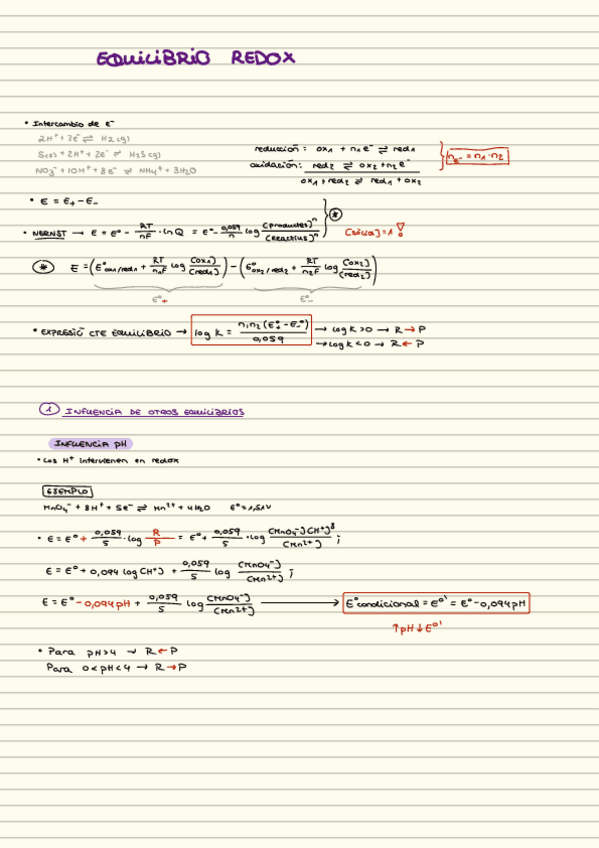 EQUILIBRIO REDOX
• Intercambio de e⁻
2H⁺ + 2e⁻ ⇌ H₂(g)
S(s) + 2H⁺ + 2e⁻ ⇌ H₂S(g)
NO₃⁻ + 10H⁺ + 8e⁻ ⇌ NH₄⁺ + 3H₂O
reducción: ox₁ + n₁e⁻ ⇌ red₁
oxidación: red₂ ⇌ ox₂ + n₂e⁻
ox₁ + red₂ ⇌ red₁ + ox₂
nₑ₋ = n₁·n₂
• E = E₊ - E₋
• NERNST → E = E° - RT/nF · lnQ = E° - 0,059/n log [productes]ⁿ/[reactius]ⁿ * [sòlid] = 1 !
* E = (E°ox₁/red₁ + RT/n₁F log [ox₁]/[red₁]) - (E°ox₂/red₂ + RT/n₂F log [ox₂]/[red₂])
E°₊ E°₋
• EXPRESSIÓ CTE EQUILIBRIO → log K = n₁n₂(E°₊ - E₋°)/0,059 → log K > 0 → R → P
→ log K < 0 → R ← P
1 INFLUENCIA DE OTROS EQUILIBRIOS
INFLUENCIA pH
• Los H⁺ intervienen en redox
EJEMPLO
MnO₄⁻ + 8H⁺ + 5e⁻ ⇌ Mn²⁺ + 4H₂O E° = 1,51V
• E = E° + 0,059/5 · log R/P = E° + 0,059/5 · log [MnO₄⁻][H⁺]⁸/[Mn²⁺] ;
E = E° + 0,094 log[H⁺] + 0,059/5 log [MnO₄⁻]/[Mn²⁺] ;
E = E° - 0,094pH + 0,059/5 log [MnO₄⁻]/[Mn²⁺] → E°condicional = E°' = E° - 0,094pH
↑pH ↓E°'
• Para pH>4 → R ← P
Para 0<pH<4 → R → P